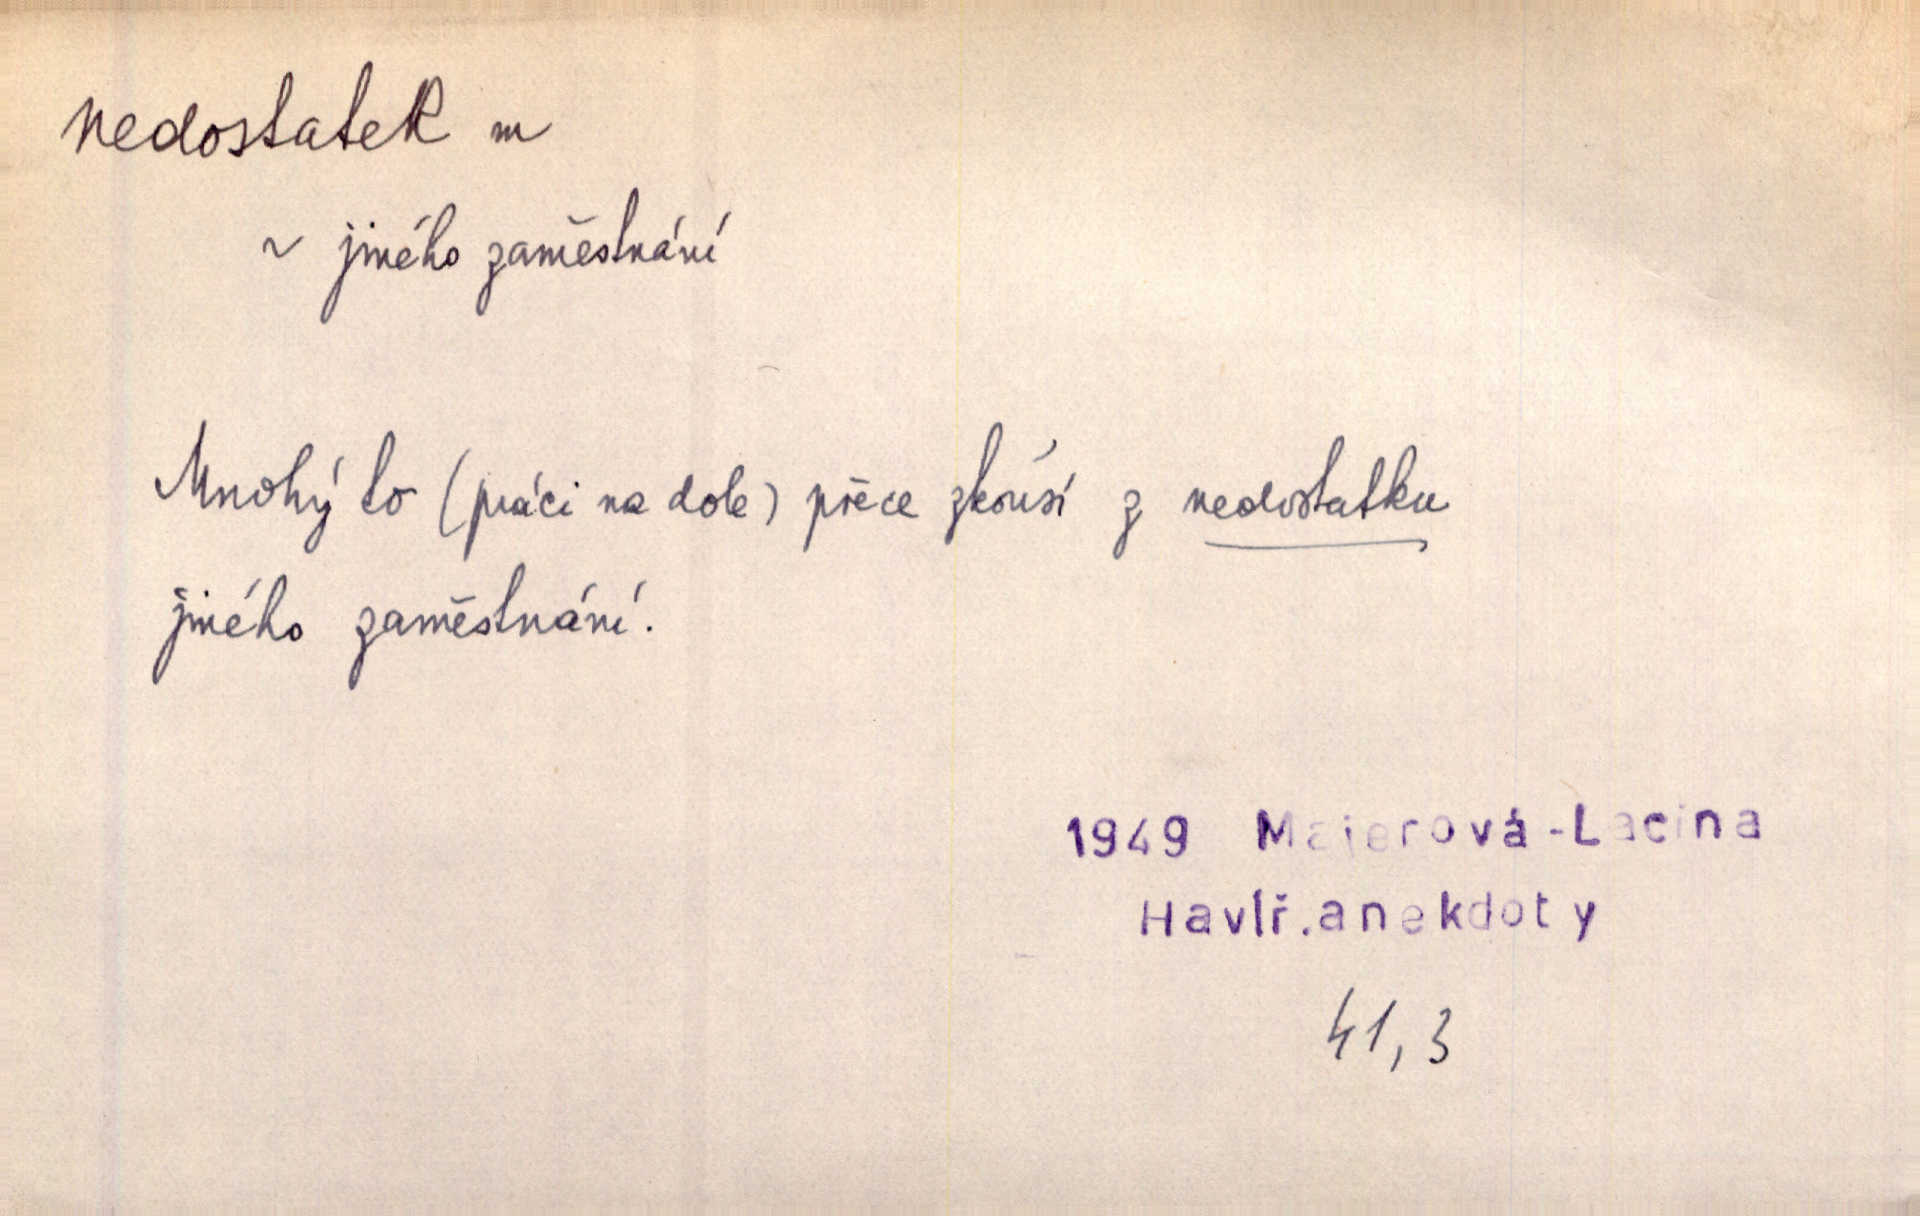 nedostatek m
~ jiného zaměstnání
Mnohý to (práci na dole) přece zkusí z nedostatku
jiného zaměstnání.
1949 Majerová-Lacina
Havlř.anekdoty
41,3